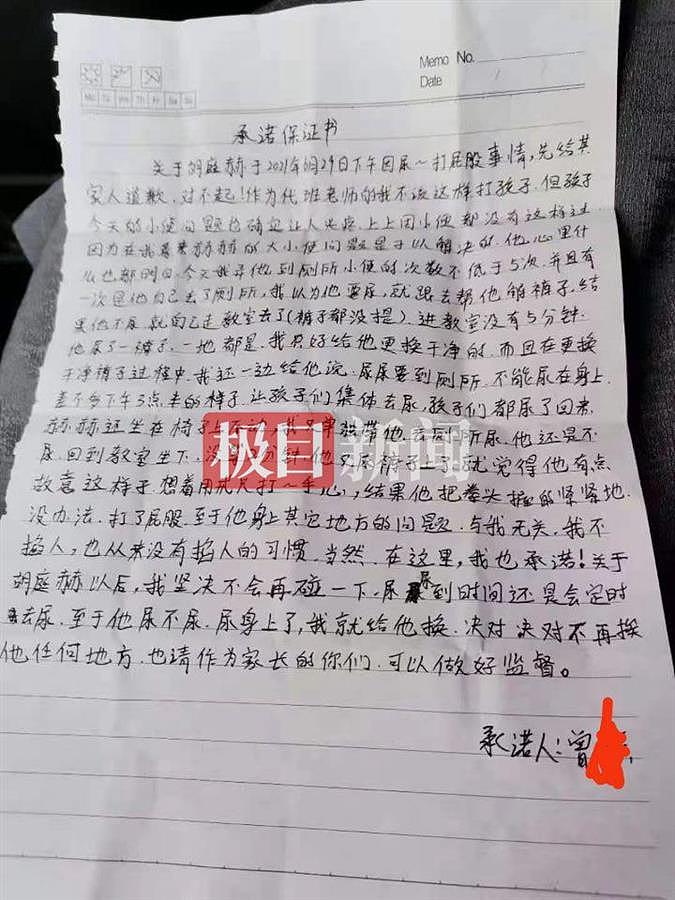 Memo No.
Date
Mo Tu We Th Fr Sa Su
承诺保证书
关于胡庭赫于2021年6月29日下午因尿~打屁股事情,先给其
家人道歉.对不起!作为代班老师的我不该这样打孩子.但孩子
今天的小便问题也确实让人头疼.上上周小便都没有这样过
因为在我看来赫赫的大小便问题是可以解决的.他心里什
么也都明白.今天我弄他到厕所小便的次数不低于5次.并且有
一次是他自己去了厕所,我以为他要尿,就跟去帮他脱裤子.结
果他不尿就自己走教室去了(裤子都没提).进教室没有5分钟.
他尿了一裤子.一地都是.我只好给他更换干净的.而且在更换
干净裤子过程中.我还一边给他说.尿尿要到厕所.不能尿在身上.
差不多下午3点来的样子.让孩子们集体去尿.孩子们都尿了回来.
赫赫还坐在椅子上不动.我又单独带他去厕所尿.他还是不
尿.回到教室坐下.没 分钟.他又尿裤子上了.就觉得他有点
故意这样子.想着用戒尺打~手心,结果他把拳头握的紧紧地.
没办法.打了屁股.至于他身上其它地方的问题.与我无关.我不
掐人,也从来没有掐人的习惯.当然.在这里,我也承诺!关于
胡庭赫以后,我坚决不会再碰一下.尿尿到时间还是会定时
去尿.至于他尿不尿.尿身上了,我就给他换.决对决对不再挨
他任何地方.也请作为家长的你们.可以做好监督。
承诺人:曾
极目新闻